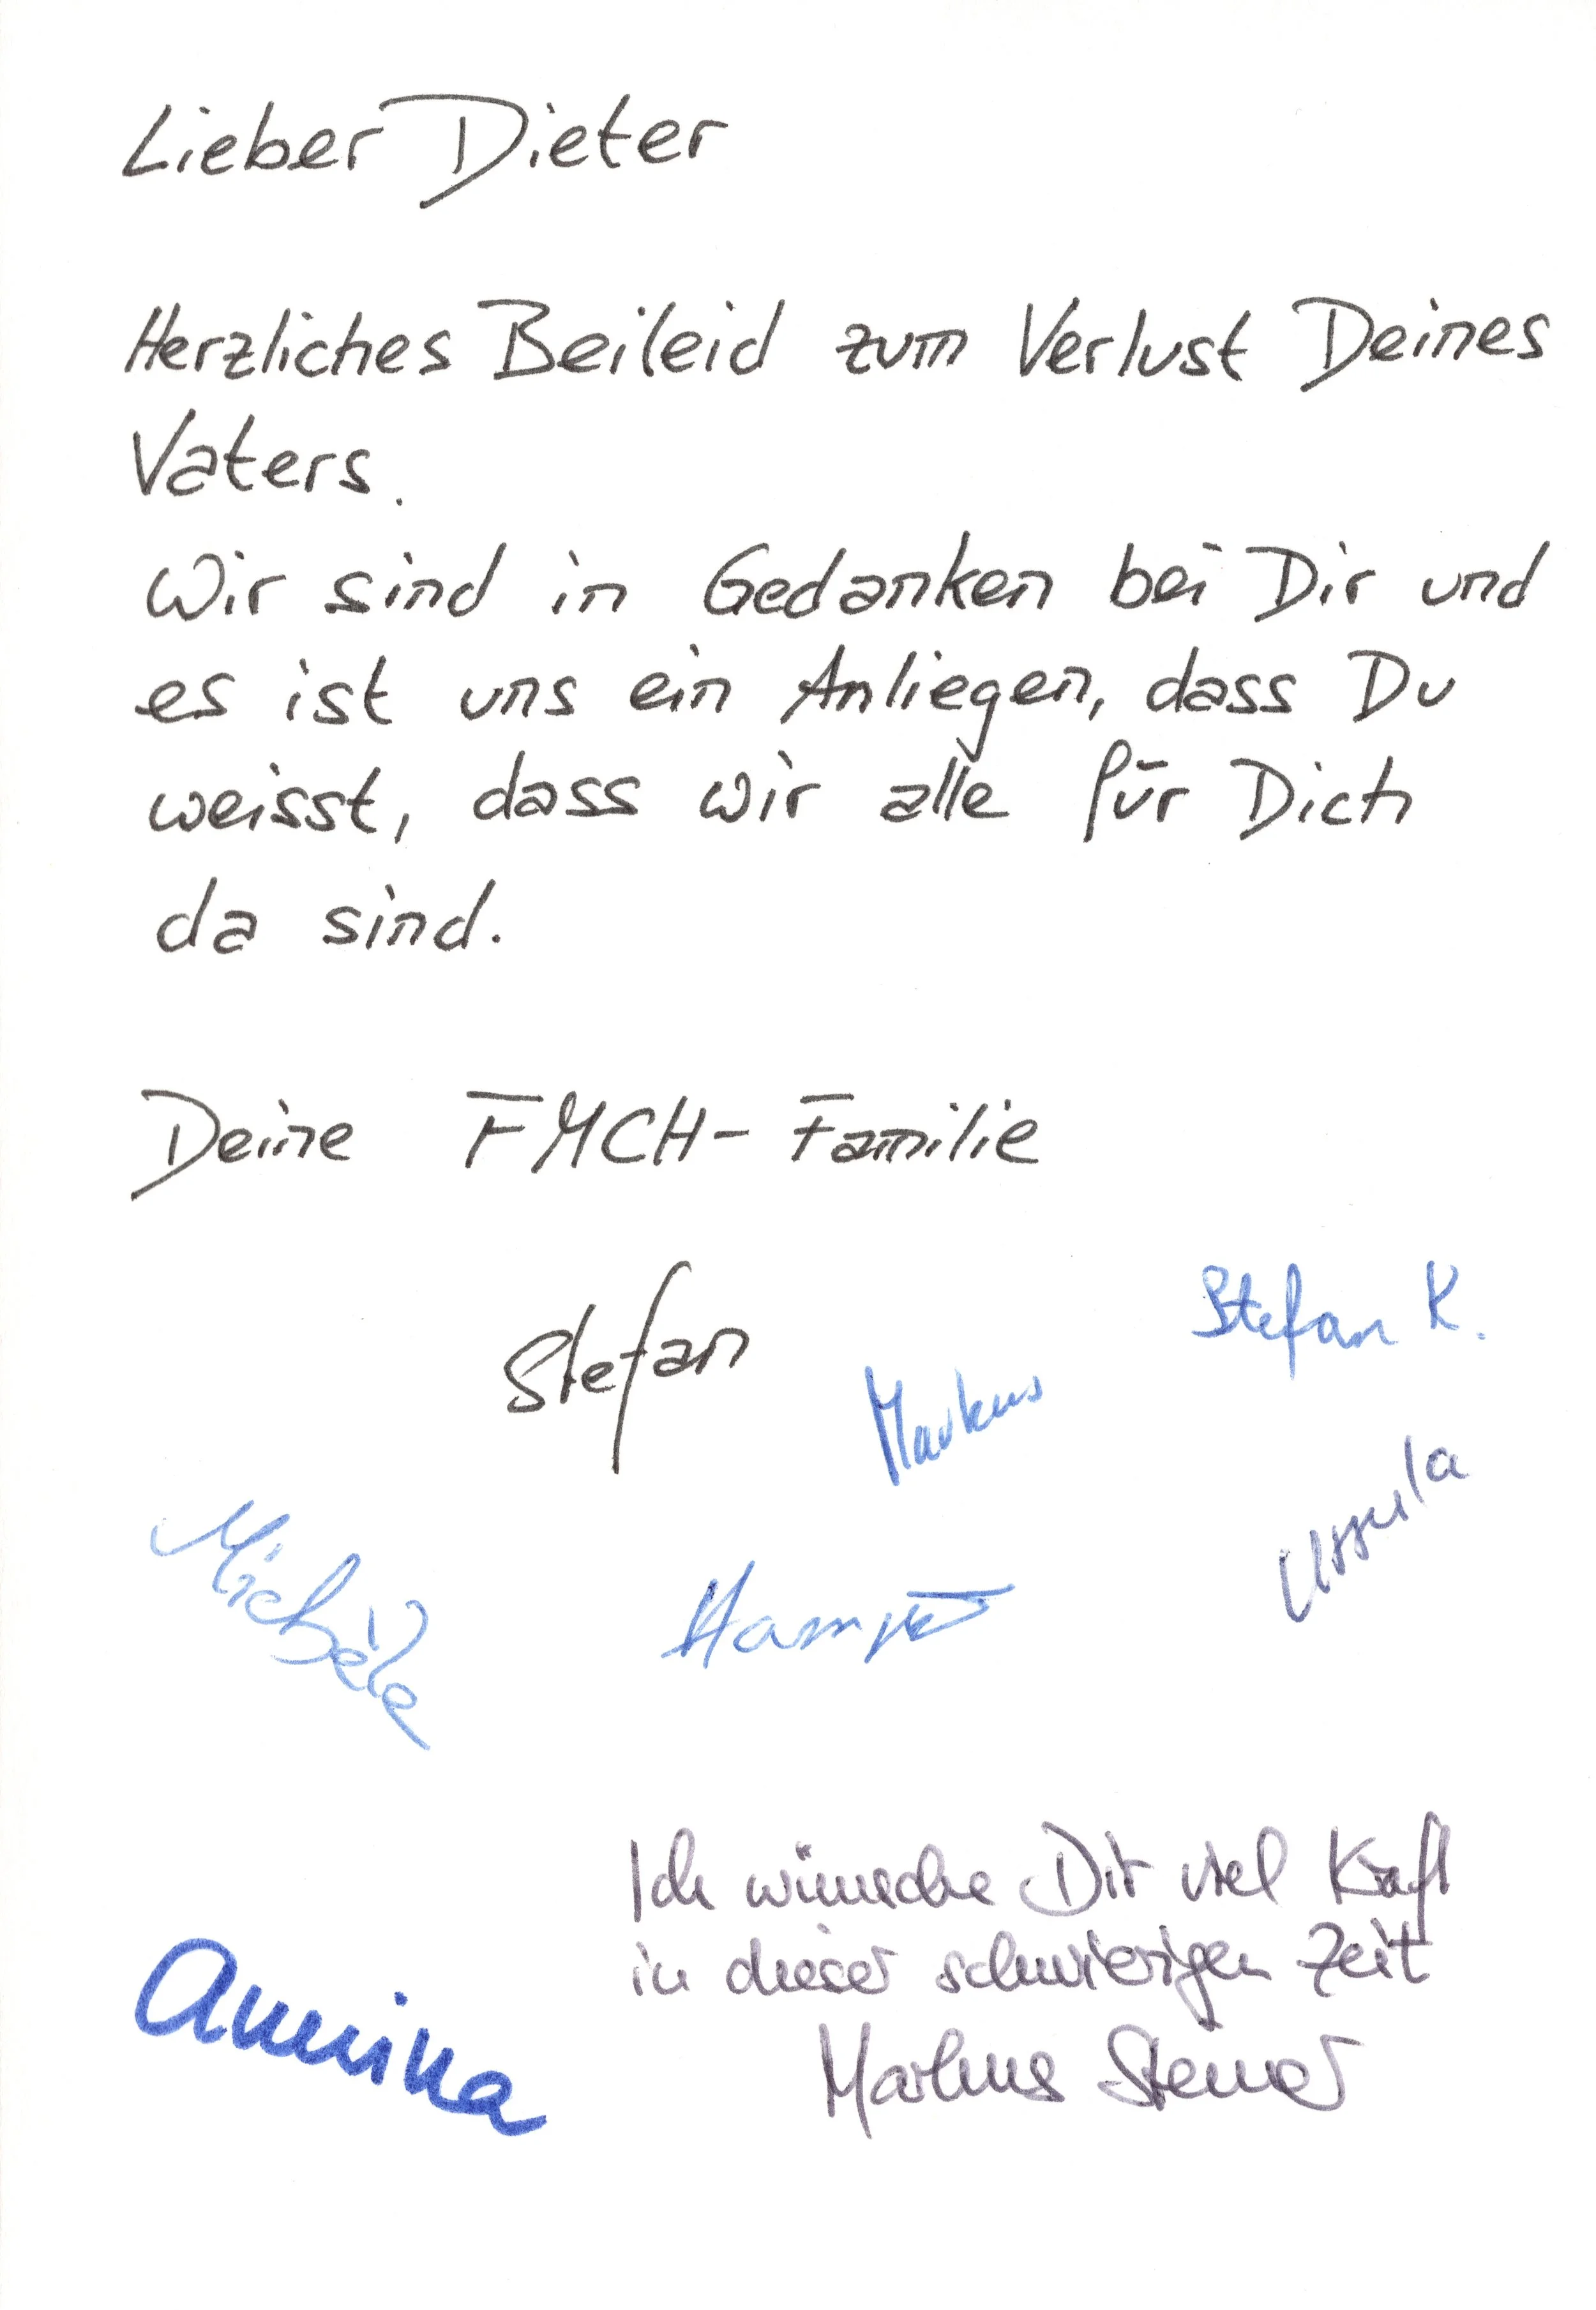 Lieber Dieter
Herzliches Beileid zum Verlust Deines
Vaters.
Wir sind in Gedanken bei Dir und
es ist uns ein Anliegen, dass Du
weisst, dass wir alle für Dich
da sind.
Deine FMCH-Familie
Stefan
Stefan K.
Markus
Ursula
Michèle
Annina
Ich wünsche Dir viel Kraft
in dieser schwierigen Zeit
Markus